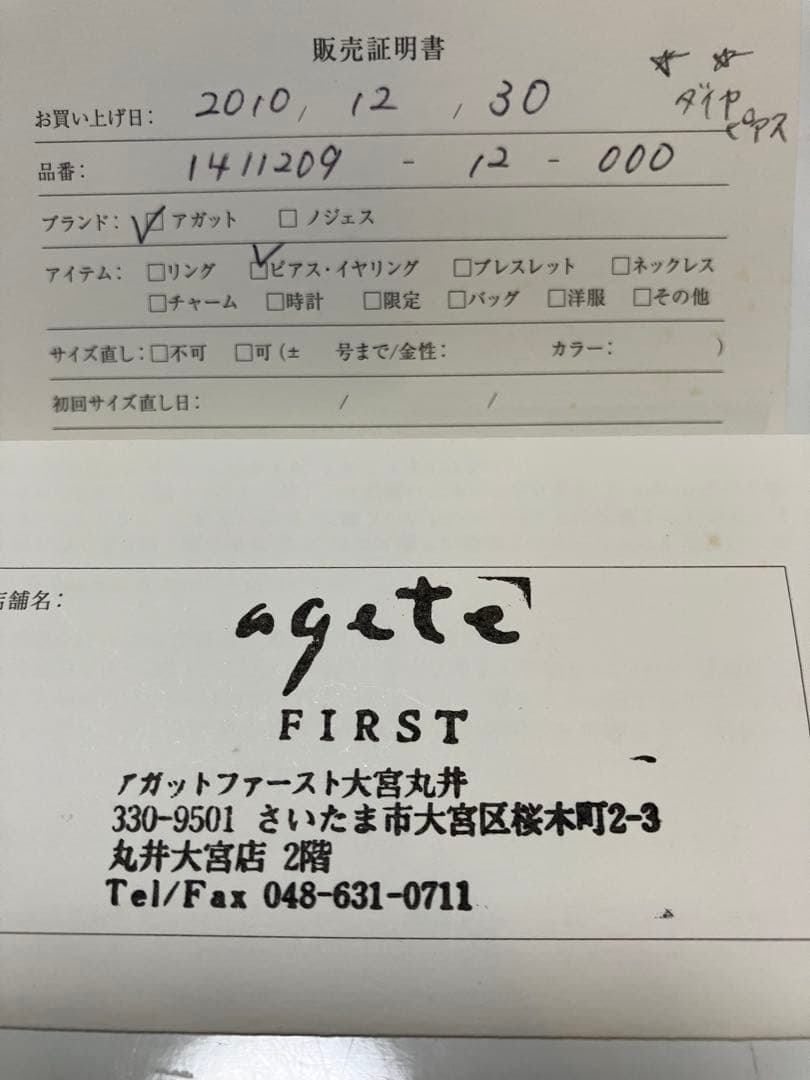 販売証明書
お買い上げ日: 2010 / 12 / 30
☆ ☆
ダイヤ
ピアス
品番: 1411209 - 12 - 000
ブランド: ☑アガット □ノジェス
アイテム: □リング ☑ピアス・イヤリング □ブレスレット □ネックレス
□チャーム □時計 □限定 □バッグ □洋服 □その他
サイズ直し: □不可 □可 (± 号まで/金性: カラー: )
初回サイズ直し日: / /
店舗名:
agete
FIRST
アガットファースト大宮丸井
330-9501 さいたま市大宮区桜木町2-3
丸井大宮店 2階
Tel/Fax 048-631-0711